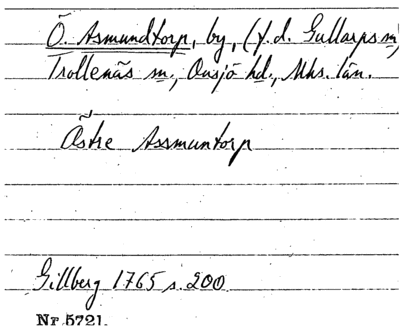 Ö. Asmundtorp, by, (f.d. Gullarps m)
Trollenäs m., Onsjö hd., Mhs. län.
Östre Assmuntorp
Gillberg 1765 s. 200
Nr 5721.